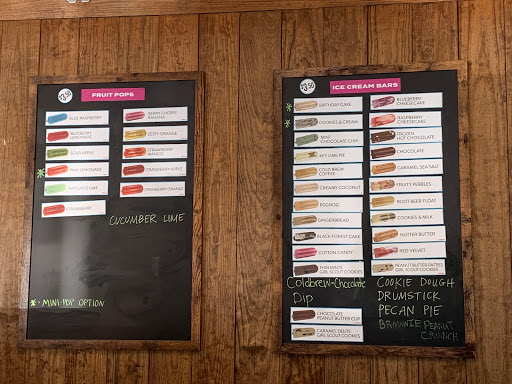 $3.50
FRUIT POPS
BLUE RASPBERRY
BLUEBERRY
LEMONADE
SOUR APPLE
PINK LEMONADE
AVOCADO LIME
STRAWBERRY
BERRY CHERRY
BANANA
ZESTY ORANGE
STRAWBERRY
MANGO
CRANBERRY APPLE
CRANBERRY ORANGE
CUCUMBER LIME
* - MINI-POP OPTION
$3.50
ICE CREAM BARS
* BIRTHDAY CAKE
* COOKIES & CREAM
MINT
CHOCOLATE CHIP
KEY LIME PIE
COLD BREW
COFFEE
CREAMY COCONUT
EGGNOG
GINGERBREAD
BLACK FOREST CAKE
COTTON CANDY
THIN MINTS
GIRL SCOUT COOKIES
Coldbrew-Chocolate
Dip
CHOCOLATE
PEANUT BUTTER CUP
CARAMEL DELITE
GIRL SCOUT COOKIES
BLUEBERRY
CHEESECAKE
RASPBERRY
CHEESECAKE
FROZEN
HOT CHOCOLATE
CHOCOLATE
CARAMEL SEA SALT
FRUITY PEBBLES
ROOT BEER FLOAT
COOKIES & MILK
NUTTER BUTTER
RED VELVET
PEANUT BUTTER PATTIES
GIRL SCOUT COOKIES
COOKIE DOUGH
DRUMSTICK
PECAN PIE
BROWNIE PEANUT
CRUNCH